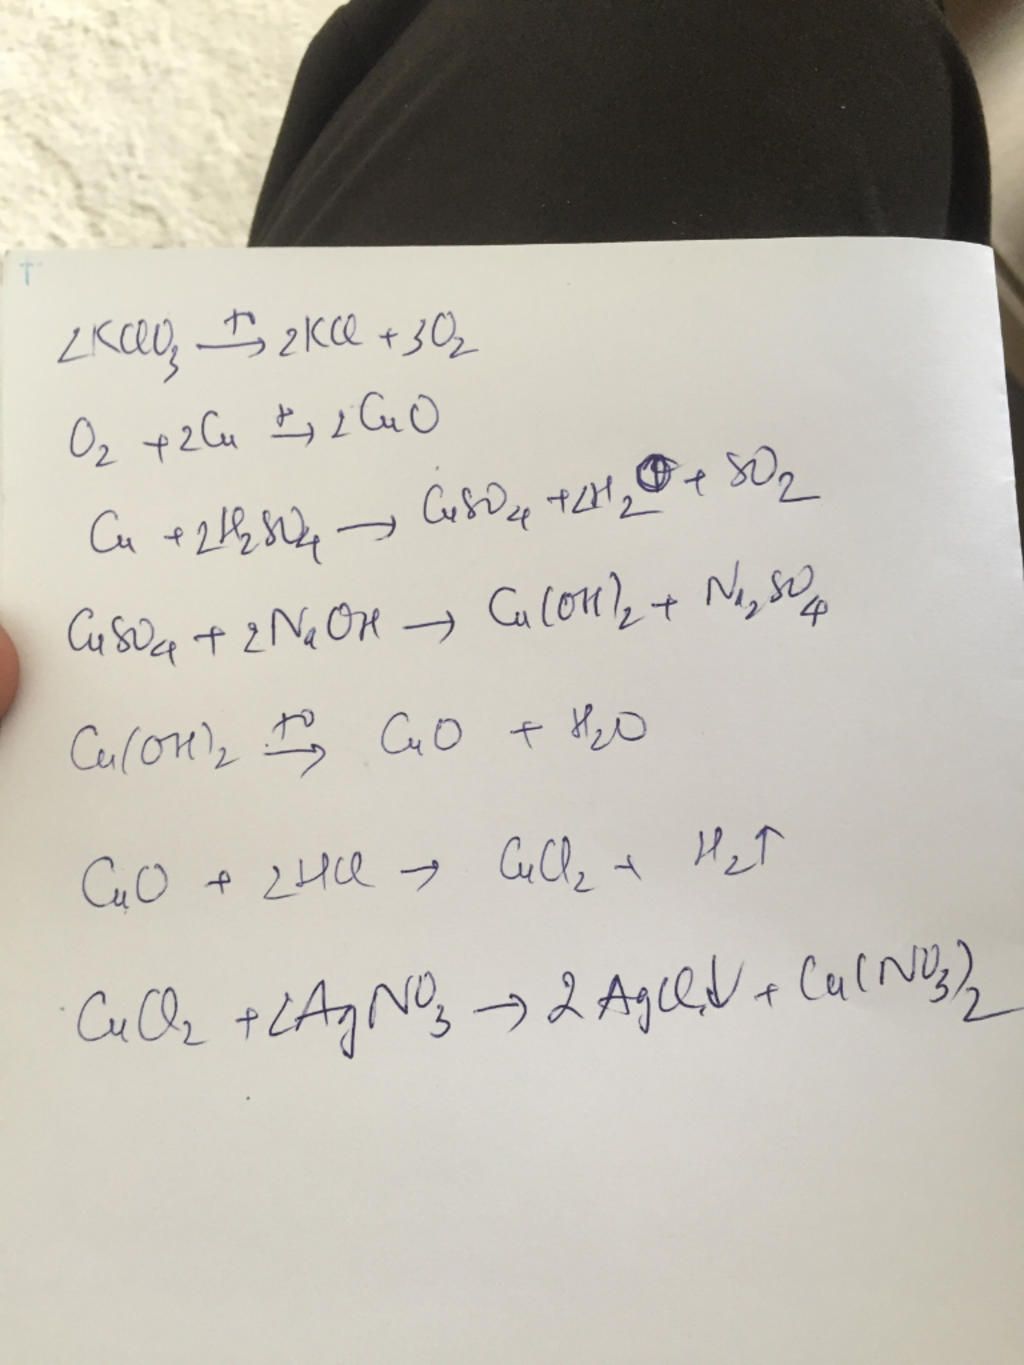 2KClO₃ →(t°) 2KCl + 3O₂
O₂ + 2Cu →(t°) 2CuO
Cu + 2H₂SO₄ → CuSO₄ + 2H₂O + SO₂
CuSO₄ + 2NaOH → Cu(OH)₂ + Na₂SO₄
Cu(OH)₂ →(t°) CuO + H₂O
CuO + 2HCl → CuCl₂ + H₂↑
CuCl₂ + 2AgNO₃ → 2AgCl↓ + Cu(NO₃)₂